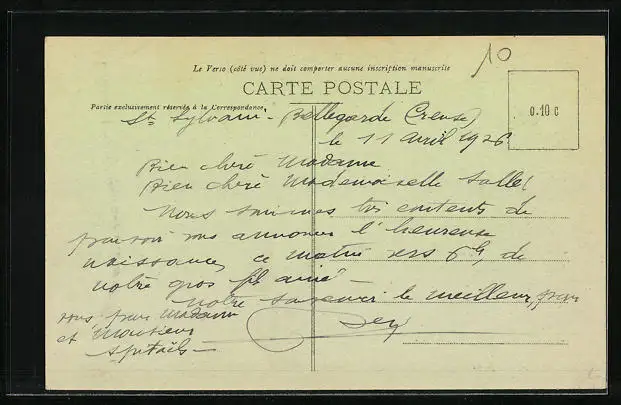 10
Le Verso (côté vue) ne doit comporter aucune inscription manuscrite
CARTE POSTALE
Partie exclusivement réservée à la Correspondance
0.10 c
St Sylvain - Bellegarde Creuse
le 11 avril 1926
Bien chère Madame
Bien chère Mademoiselle
Nous sommes très contents de
pouvoir vous annoncer l'heureuse
naissance, ce matin vers 6h, de
notre gros fils aîné -
notre souvenir le meilleur, pour
vous, pour Madame
et Monsieur